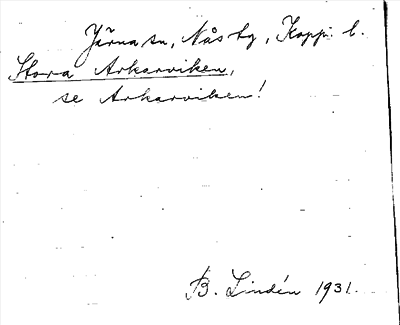 Järna sn, Nås tg, Kopp. l.
Stora Arkarviken,
se Arkarviken!
B. Lindén 1931.